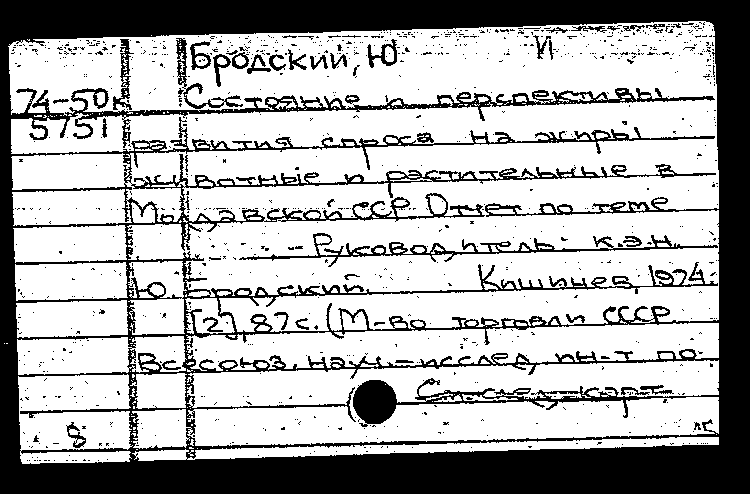 Бродский, Ю. И
74-50к Состояние и перспективы
5751
развития спроса на жиры
животные и растительные в
Молдавской ССР. Отчет по теме
- Руководитель: к.э.н.
Ю. Бродский. Кишинев, 1974.
[2], 87 с. (М-во торговли СССР.
Всесоюз. науч.-исслед. ин-т по
См. след. карт.
8